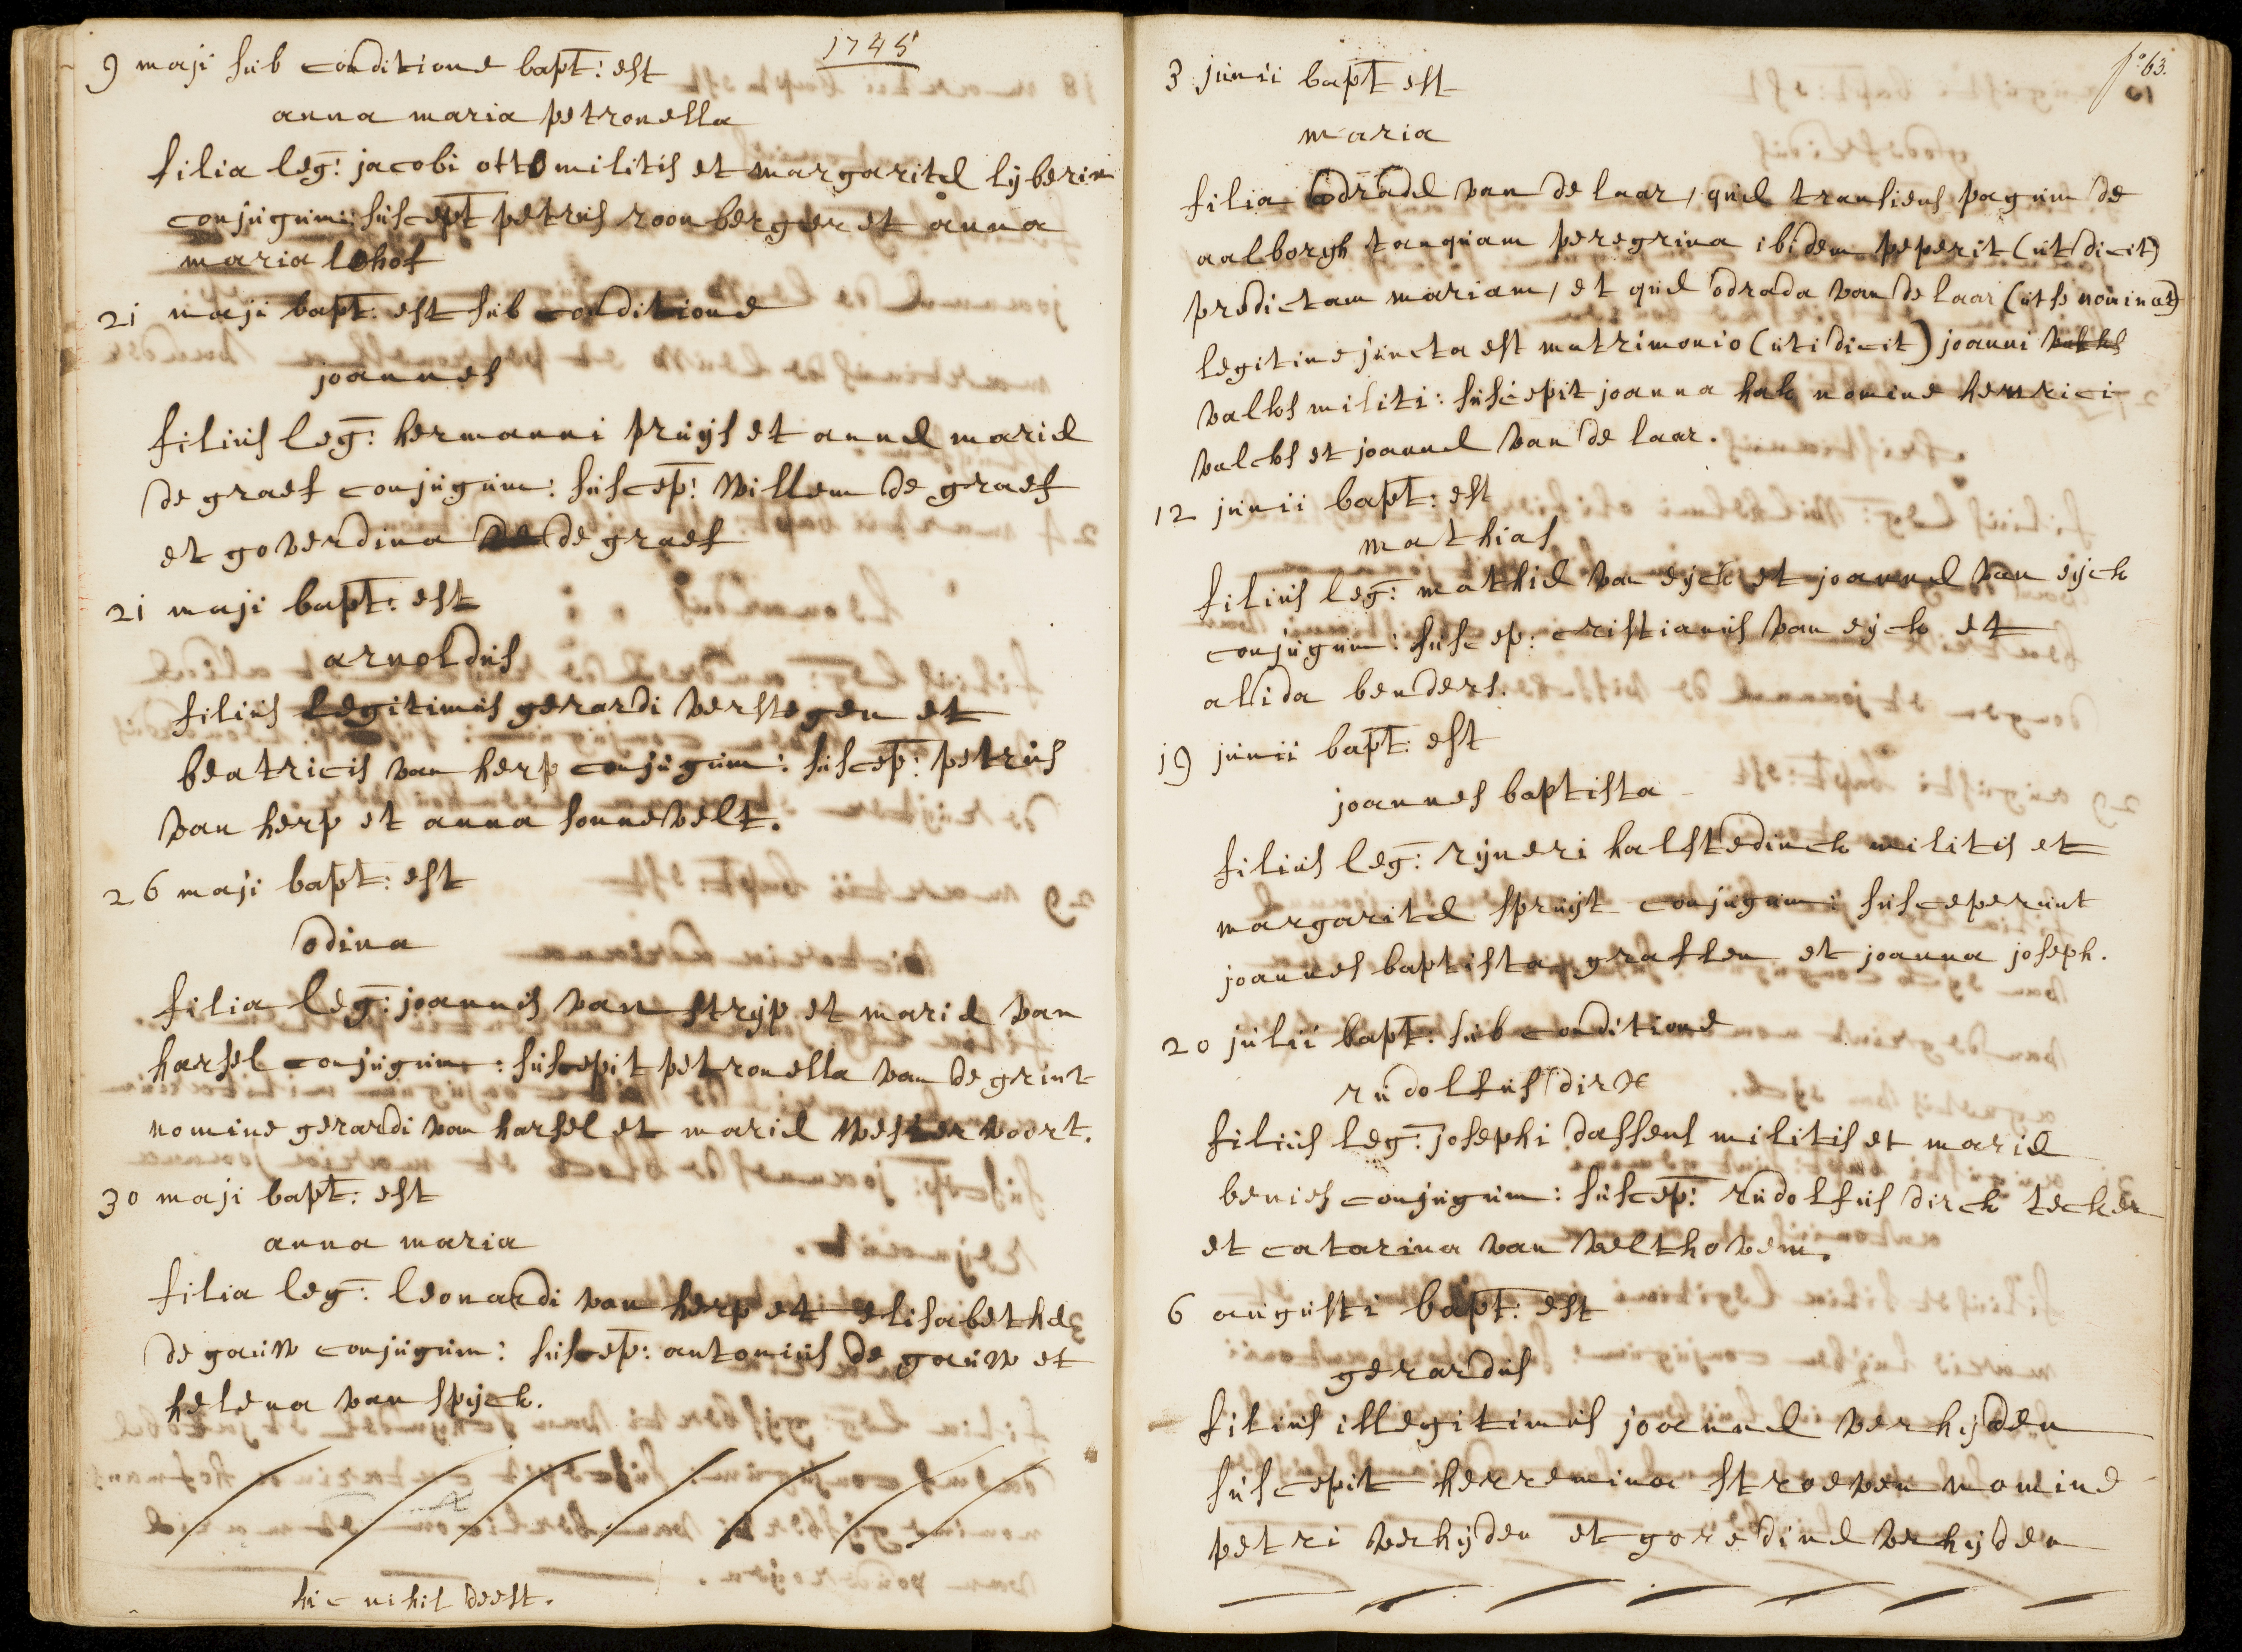 1745
9 maji sub conditione bapt: est
anna maria petronella
filia leg: jacobi otto militis et margaritæ lyberin
conjugum: suscept petrus roonberger et anna
maria lohof
21 maji bapt: est sub conditione
joannes
filius leg: hermanni pruijs et annæ mariæ
de graef conjugum: suscep: willem de graef
et goverdina de graef
21 maji bapt: est
arnoldus
filius legitimus gerardi verstegen et
beatricis van herp conjugum: suscep: petrus
van herp et anna sonnevelt.
26 maji bapt: est
odina
filia leg: joannis van strijp et mariæ van
harsel conjugum: suscepit petronella van de grint
nomine gerardi van harsel et mariæ westervoort.
30 maji bapt: est
anna maria
filia leg: leonardi van herp et elisabethæ
de gauw conjugum: suscep: antonius de gauw et
helena van spijck.
hic nihil deest.
fo: 63.
3 junii bapt est
maria
filia odradæ van de laar, quæ transiens pagum de
aalborgh tanquam peregrina ibidem peperit (ut dicit)
predictam mariam, et quæ odrada van de laar (ut se nominat)
legitime juncta est matrimonio (uti dicit) joanni
valks militi: suscepit joanna hak nomine henrici
valcks et joannæ van de laar.
12 junii bapt: est
mathias
filius leg: mathiæ van eijck et joannæ van eijck
conjugum: suscep: cristianus van eijck et
alida benders.
19 junii bapt: est
joannes baptista
filius leg: rijneri halstedinck militis et
margaritæ spruijt conjugum: susceperunt
joannes baptista graften et joanna joseph.
20 julii bapt: sub conditione
rudolfus dirk
filius leg: josephi dassens militis et mariæ
benies conjugum: suscep: rudolfus dirck tecker
et catarina van velthovem.
6 augusti bapt: est
gerardus
filius illegitimus joannæ verhijden
suscepit herremina stroeven nomine
petri verhijden et goredinæ verhijden